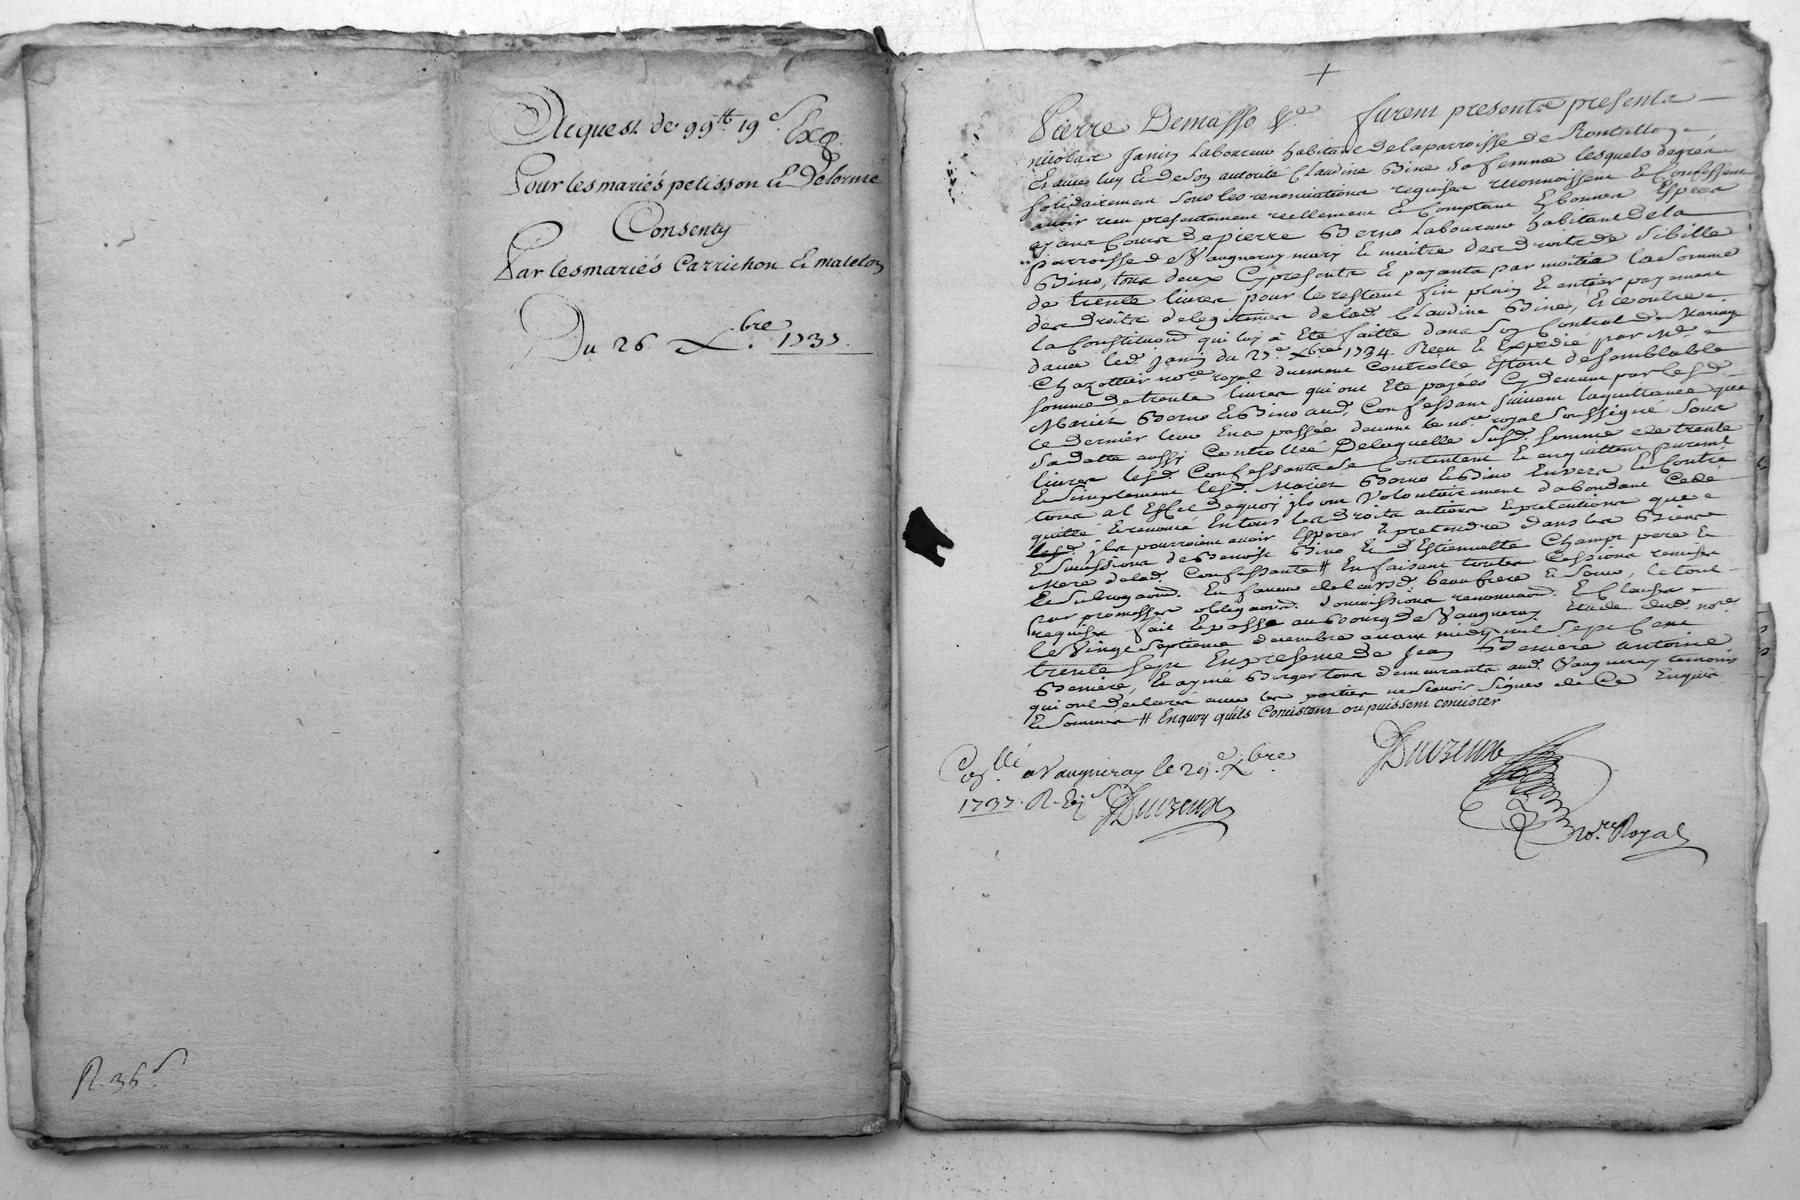 Acquest de 99tt 19s Exp.
Pour les mariés petisson & Delorme
Consenty
Par les mariés Carrichon & mateton
Du 26 Xbre. 1737.
R. 36s
Pierre Demasso &a furent presents presents
nicolas Janin Laboureur habitant de la parroisse de Rontallon
Et avec luy & de son autorité Claudine Bine sa femme lesquels degrés
solidairement sous les renonciations requises reconnoissent & Confessent
avoir reçu presentement reellement & Comptant En bonnes Especes
ayant Cours de pierre Berno Laboureur habitant de la
parroisse de Vaugneray mary & maitre des droits de Sibille
Bino, tous deux Cy presents & payants par moitié la somme
de trente livres pour le restant fin plain & entier payement
des droits de legitimes de lad. Claudine Bine, En ce outre
la Constitution qui luy à Eté faitte dans son Contrat de Mariage
avec led. Janin du 27e. Xbre 1734. Reçu & Expedié par Me
Chazottier nore royal duement Controllé Etant de semblable
somme de trente livres qui ont Eté payées Cy devant par lesd.
Mariés Berno & Bino aud. Confessant suivant la quittance que
ce dernier leur en a passée devant le nore royal soussigné sous
sa datte aussy Controllée De laquelle susd. somme de trente
livres lesd. Confessants se Contentent & en quittent purement
& simplement lesd. Mariés Berno & Bino Envers & Contre
tous al Effet dequoy ils ont Volontairement d'abondant Cedé
quitté & renoncé En tous les droits actions & pretentions que
lesd. ils pourroient avoir Esperer & pretendre dans les Biens
& successions de Benoist Bino & d'Estiennette Champt pere &
Mere de lad. Confessante # En faisant toutes Cessions remises
& subrogaons. En faveur de leursd. beau frere & soeur, le tout
par promesses obligaons. soumissions renonciaons. & Clauses
requises fait & passé au Bourg de Vaugneray Etude dud. nore
le Vingt septieme decembre avant midy mil sept Cent
trente sept En presence de Jean Beniere antoine
Beniere, & aymé Berger tous demeurants aud. Vaugneray temoins
qui ont declarés avec les parties ne sçavoir signer de Ce Enquis
& sommés # En quoy qu'ils Consistent ou puissent consister
Conllé a Vaugneray le 29e. Xbre
1737. R. Six s
nore. Royal